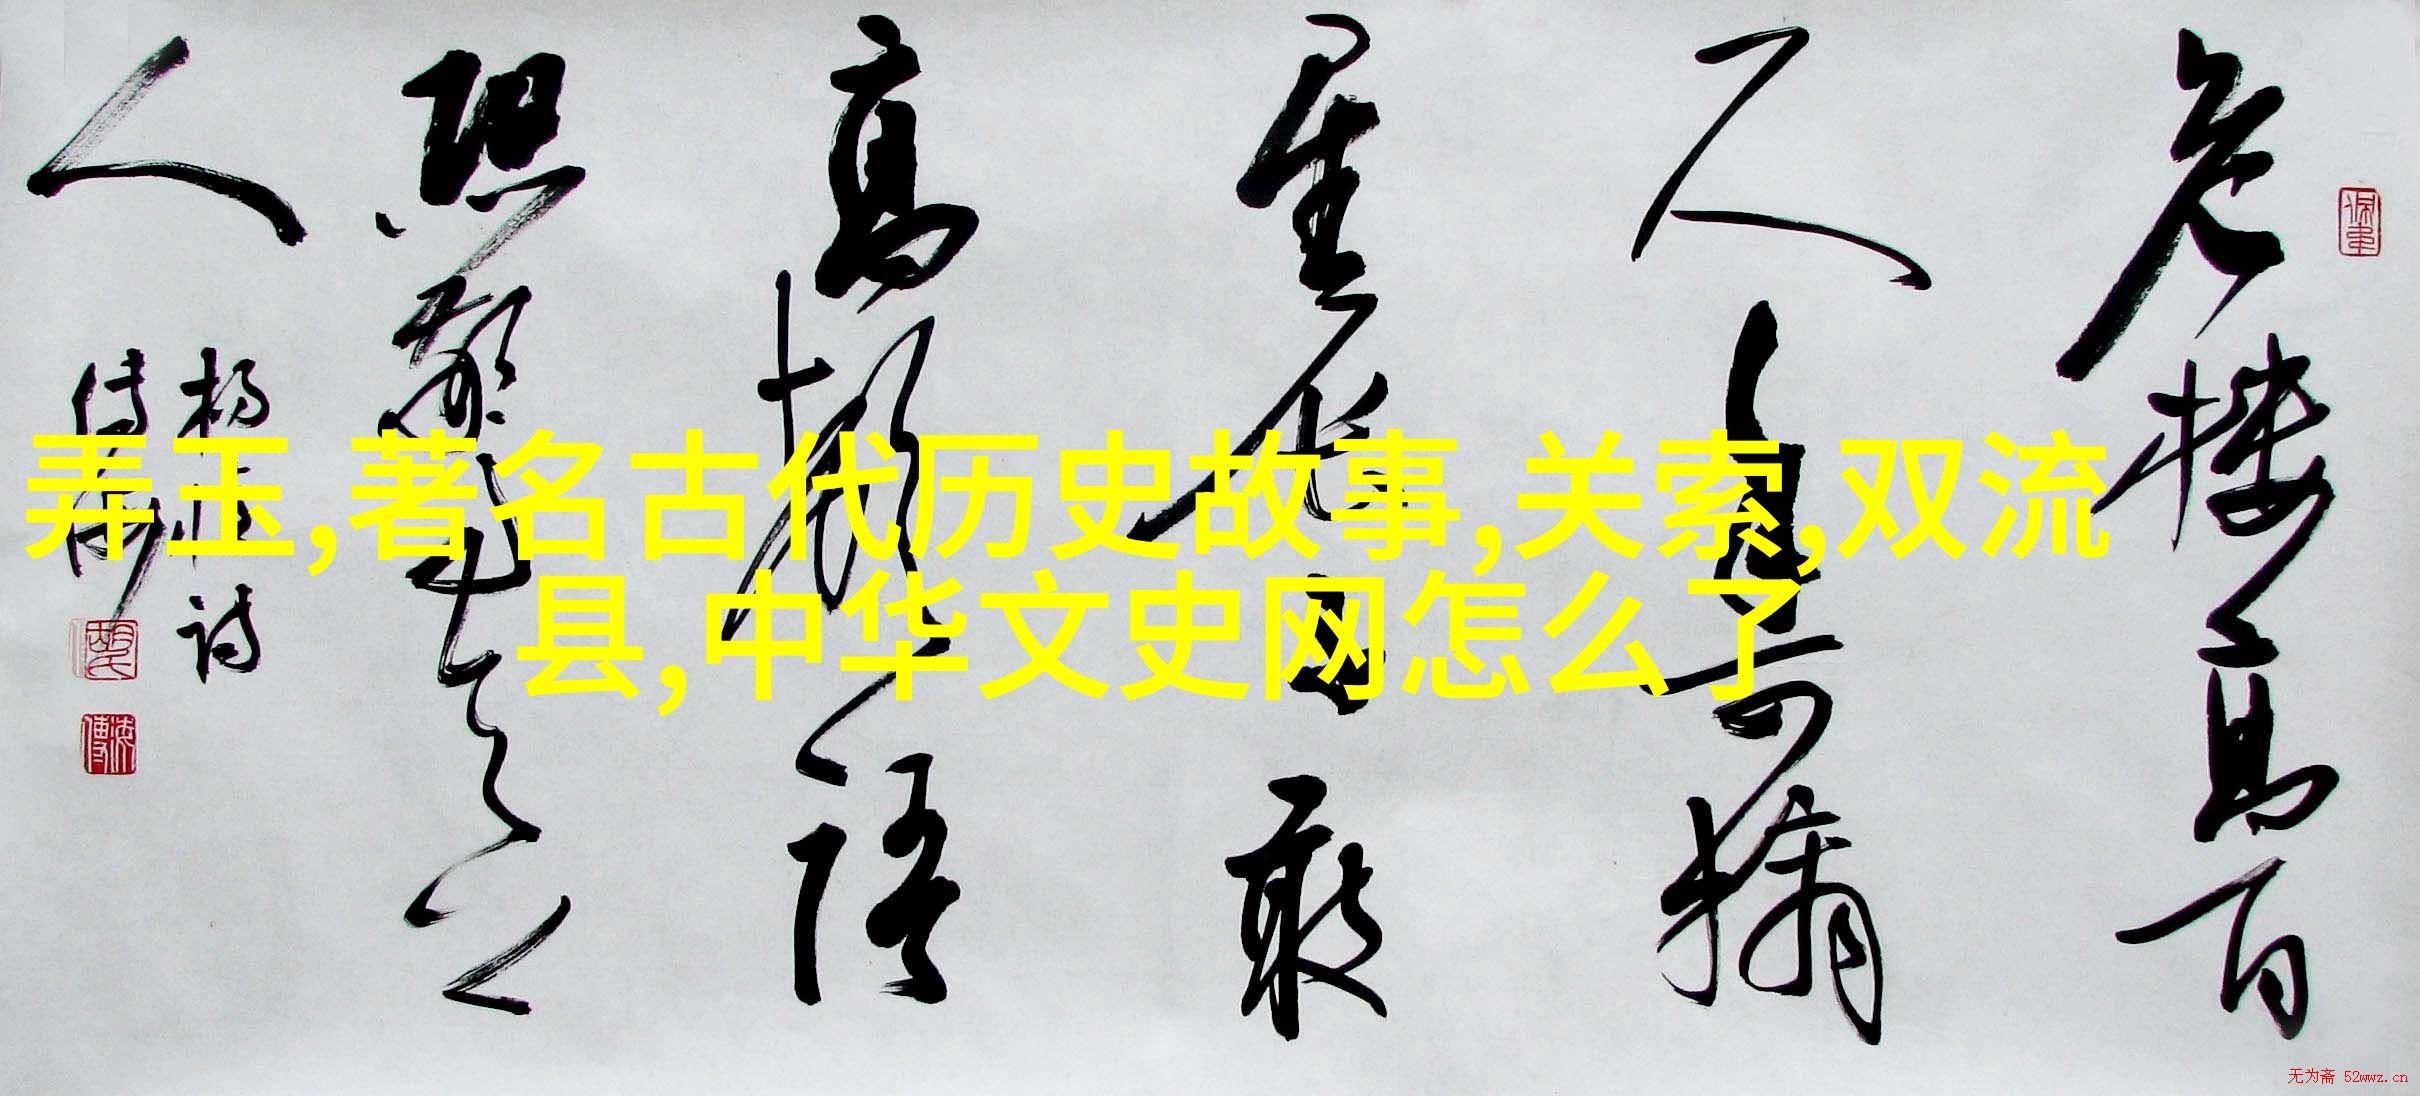 弄玉,著名古代历史故事,关索,双流
县,中华文史网怎么了
危楼高百
尺手可摘
星辰不敢
高声语
恐惊天上
人
无为斋 52wwz.cn